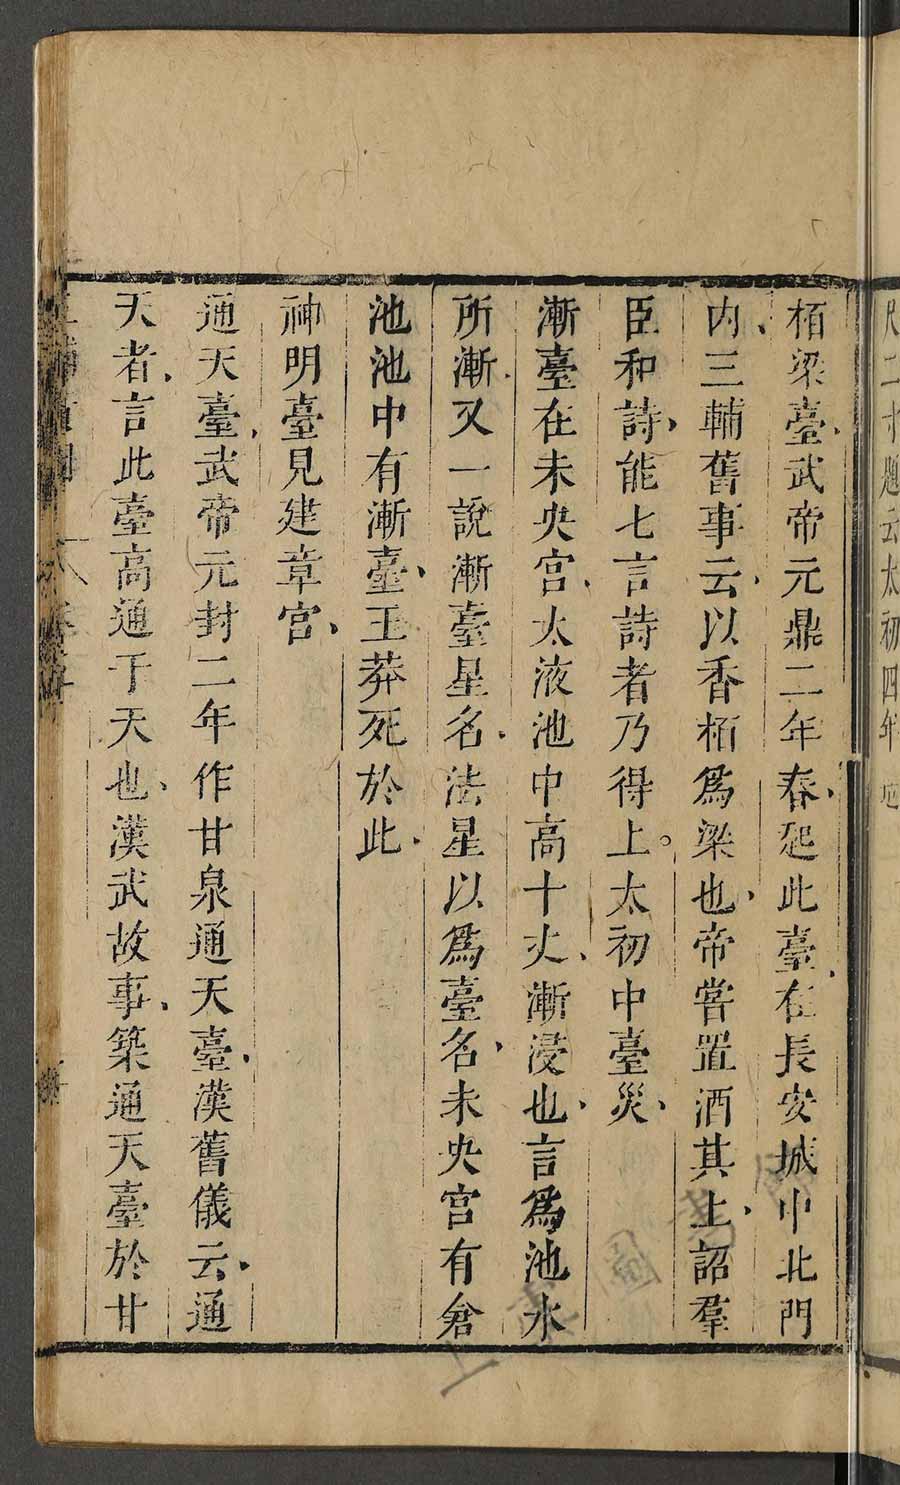 尺二寸題云太初四年
栢梁臺武帝元鼎二年春起此臺在長安城中北門
内三輔舊事云以香栢爲梁也帝嘗置酒其上詔羣
臣和詩能七言詩者乃得上。太初中臺災
漸臺在未央宮太液池中高十丈漸浸也言爲池水
所漸又一說漸臺星名法星以爲臺名未央宮有倉
池池中有漸臺王莽死於此
神明臺見建章宮
通天臺武帝元封二年作甘泉通天臺漢舊儀云通
天者言此臺高通于天也漢武故事築通天臺於甘